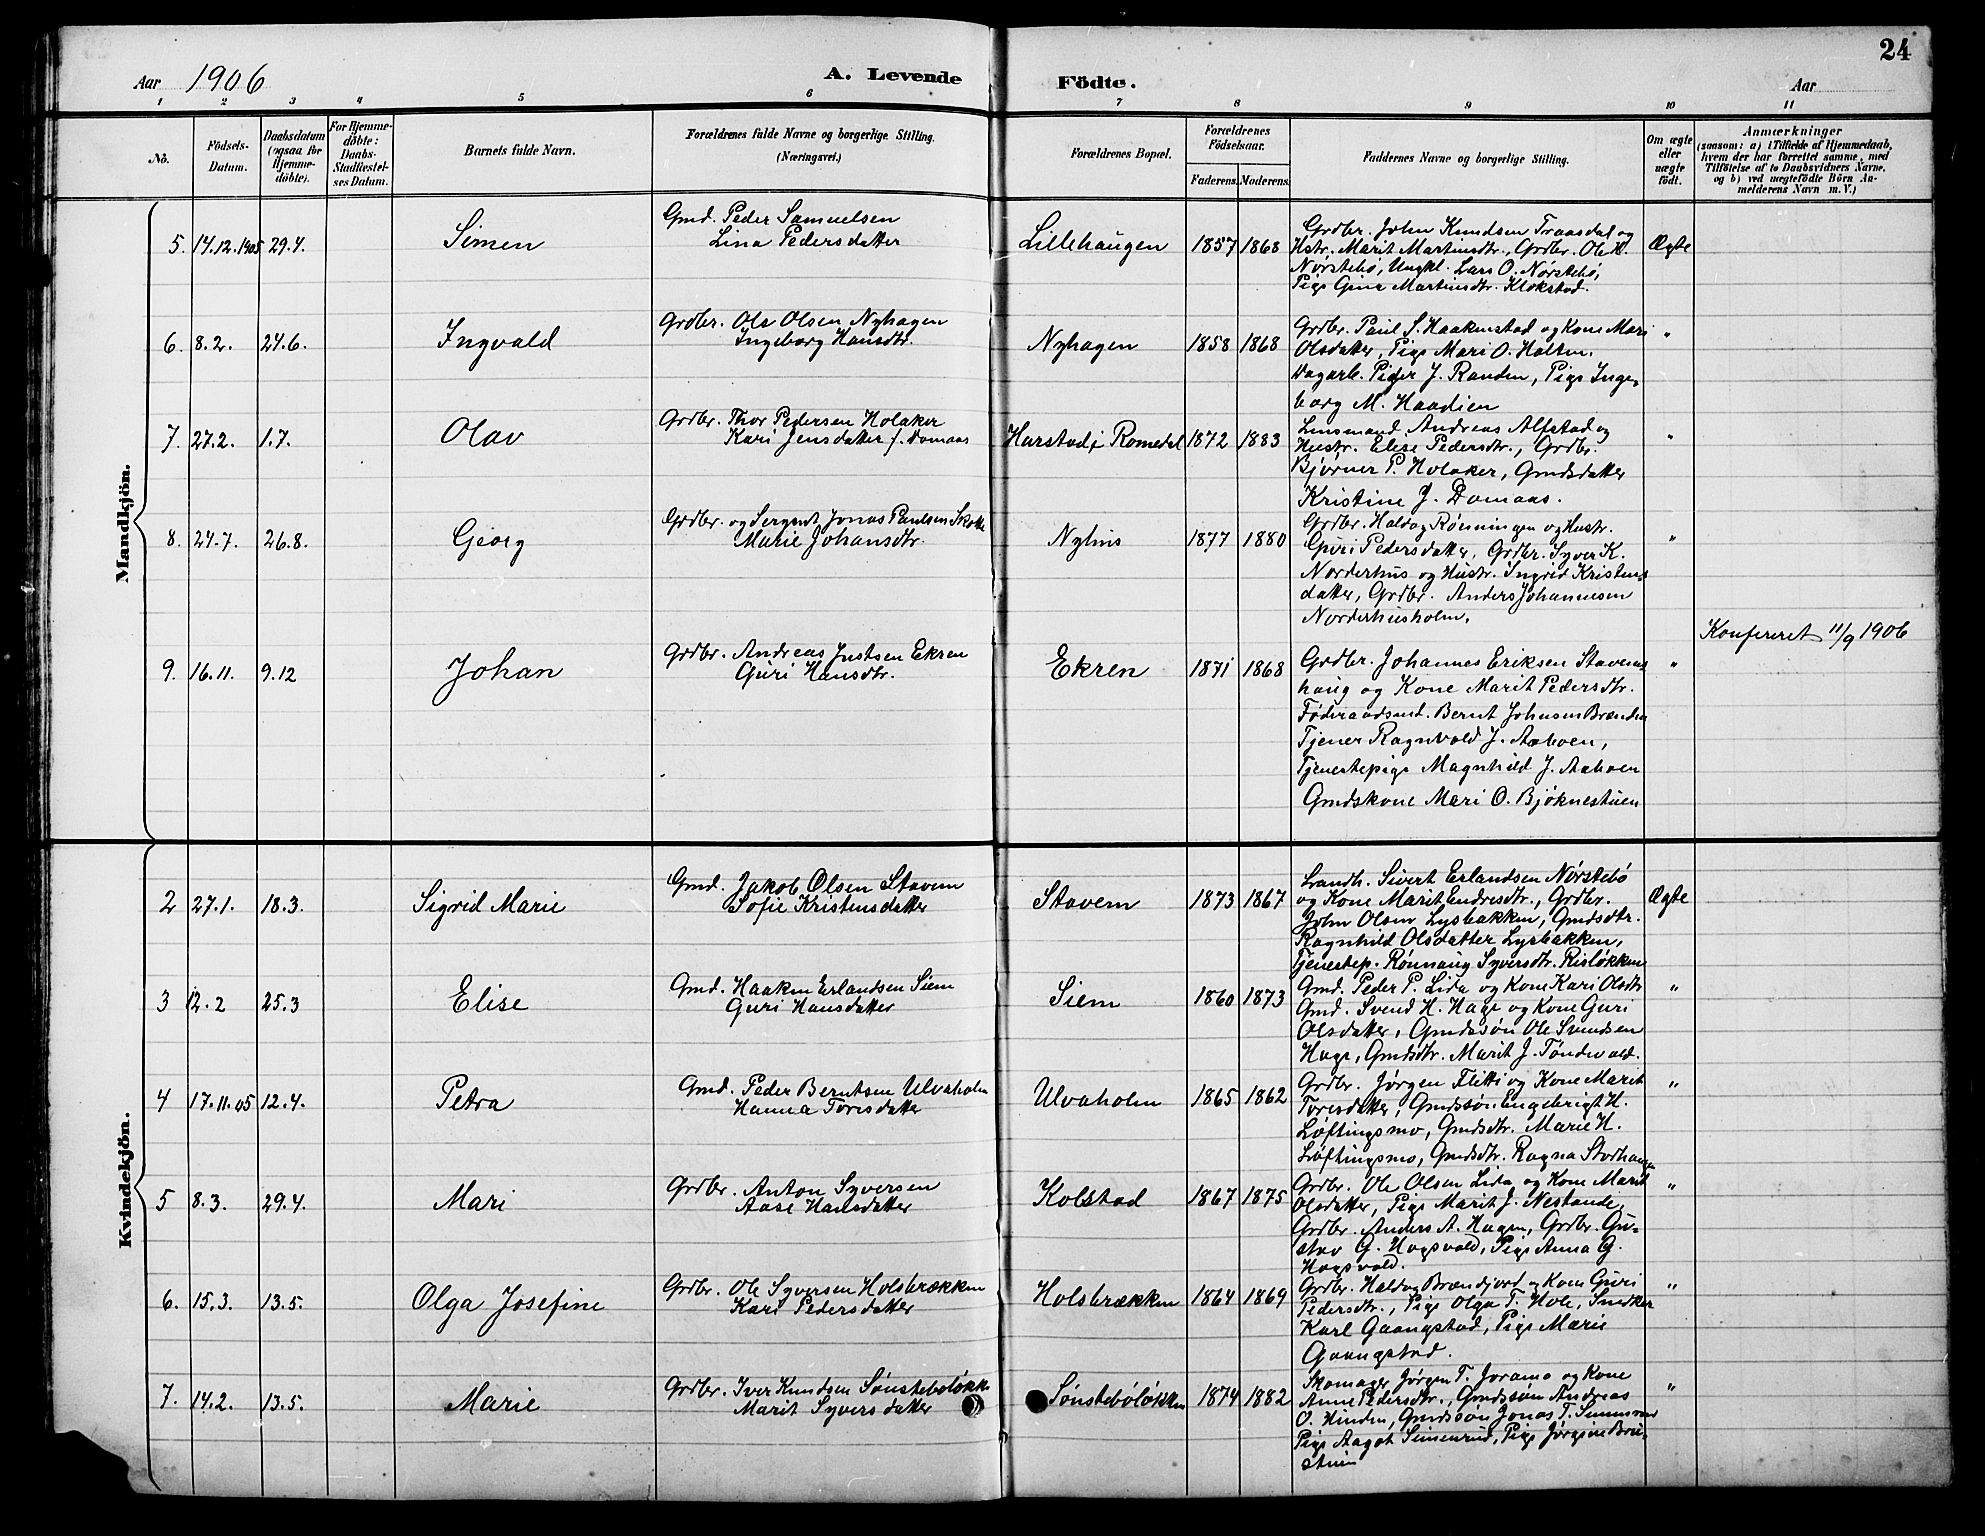 24
Aar 1906
A. Levende Födte.
Aar
1 2 3 4 5 6 7 8 9 10 11
No.
Födsels-Datum.
Daabsdatum (ogsaa for Hjemme-döbte).
For Hjemme-döbte: Daabs-Stadfæstel-ses Datum.
Barnets fulde Navn.
Forældrenes fulde Navne og borgerlige Stilling. (Næringsvei.)
Forældrenes Bopæl.
Forældrenes Födselsaar.
Faderens. Moderens.
Faddernes Navne og borgerlige Stilling.
Om ægte eller uægte födt.
Anmærkninger
(saasom: a) i Tilfælde af Hjemmedaab,
hvem der har forrettet samme, med
Tilföielse af to Daabsvidners Navne,
og b) ved uægtefödte Börn An-
melderens Navn m. V.)
Mandkjön.
5. 14.12.1905 29.4. Simen
Gmd. Peder Samuelsen
Lina Pedersdatter
Lillehaugen 1857 1868
Grdbr. John Knudsen Traasdal og
Hstr. Marit Martinsdtr., Grdbr. Ole K.
Nørstebø, Ungkl. Lars O. Nørstebø,
Pige Gina Martinsdtr. Klokstad.
Ægte
6. 8.2. 24.6. Ingvald
Grdbr. Ole Olsen Nyhagen
Ingeborg Hansdtr.
Nyhagen 1858 1868
Grdbr. Paul S. Haakenstad og Kone Mari
Olsdatter, Pige Mari O. Holten,
Dagarb. Peder J. Randen, Pige Inge-
borg M. Haadien
"
7. 27.2. 1.7. Olav
Grdbr. Thor Pedersen Holaker
Kari Jensdatter f. Domaas
Harstad i Romedal 1872 1883
Lensmand Andreas Alfstad og
Hustr. Elise Pedersdtr., Grdbr.
Bjørner P. Holaker, Gmdsdatter
Kristine J. Domaas.
"
8. 24.7. 26.8. Georg
Grdbr. og Sergent Jonas Paulsen
Marie Johansdtr.
Nyhus 1877 1880
Grdbr. Haldog Rønningen og Hustr.
Guri Pedersdatter, Grdbr. Syver K.
Norderhus og Hustr. Ingrid Kristens-
datter, Grdbr. Anders Johannesen
Norderhusholm.
"
Konfereret 11/9 1906
9. 16.11. 9.12 Johan
Grdbr. Andreas Justsen Ekren
Guri Hansdtr.
Ekren 1871 1868
Grdbr. Johannes Eriksen Stavens-
haug og Kone Marit Pedersdtr.
Føderaadsmd. Bernt Johnsen Brenden
Tjener Ragnvald J. Aahoen,
Tjenestepige Magnhild J. Aahoen
Gmdskone Mari O. Bjøknestuen
"
Kvindekjön.
2 27.1. 18.3. Sigrid Marie
Gmd. Jakob Olsen Stavem
Sofie Kristensdatter
Stavem 1873 1867
Landh. Sivert Erlandsen Nørstebø
og Kone Marit Endresdtr., Grdbr.
John Olsen Lysbakken, Gmdsdtr.
Ragnhild Olsdatter Lysbakken,
Tjenestep. Rønnaug Syversdtr. Risløkken
Ægte
3 12.2 25.3 Elise
Gmd. Haaken Erlandsen Siem
Guri Hansdatter
Siem 1860 1873
Gmd. Peder P. Lida og Kone Kari Olsdtr
Gmd. Svend H. Hage og Kone Guri
Olsdatter, Gmdssøn Ole Svendsen
Hage, Gmdsdtr. Marit J. Tøndevold.
"
4 17.11.05 12.4. Petra
Gmd. Peder Berntsen Ulvaholm
Hanna Toresdatter
Ulvaholm 1865 1862
Grdbr. Jørgen Flitti og Kone Marit
Toresdatter, Gmdssøn Engebrigt H.
Løftingsmo, Gmdsdtr. Marie H.
Løftingsmo, Gmdsdtr. Ragna Storhaugen
"
5 8.3. 29.4. Mari
Grdbr. Anton Syversen
Aase Hansdatter
Kolstad 1867 1875
Grdbr. Ole Olsen Lida og Kone Marit
Olsdatter, Pige Marit J. Nestande,
Grdbr. Anders A. Hagen, Grdbr. Gu-
stav G. Hogsvold, Pige Anna G.
Hogsvold.
"
6. 15.3. 13.5. Olga Josefine
Grdbr. Ole Syversen Holsbrækken
Kari Pedersdatter
Holsbrækken 1864 1869
Grdbr. Haldog Brændjord og Kone Guri
Pedersdtr., Pige Olga T. Hole, Snedker
Karl Gaangstad, Pige Marie
Gaangstad.
"
7. 14.2. 13.5. Marie
Grdbr. Iver Knudsen Sønstebøløkk.
Marit Syversdatter
Sønstebøløkken 1874 1882
Skomager Jørgen T. Joramo og Kone
Anne Pedersdtr., Gmdssøn Andreas
O. Hinden, Gmdssøn Jonas T. Simenrud
Pige Aagot Simenrud, Pige Jørgine
"